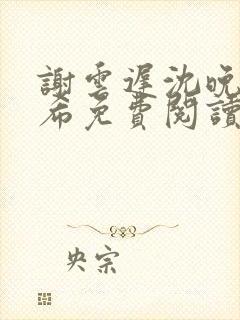 謝雲遲沈晚
希免費閱讀
央宗